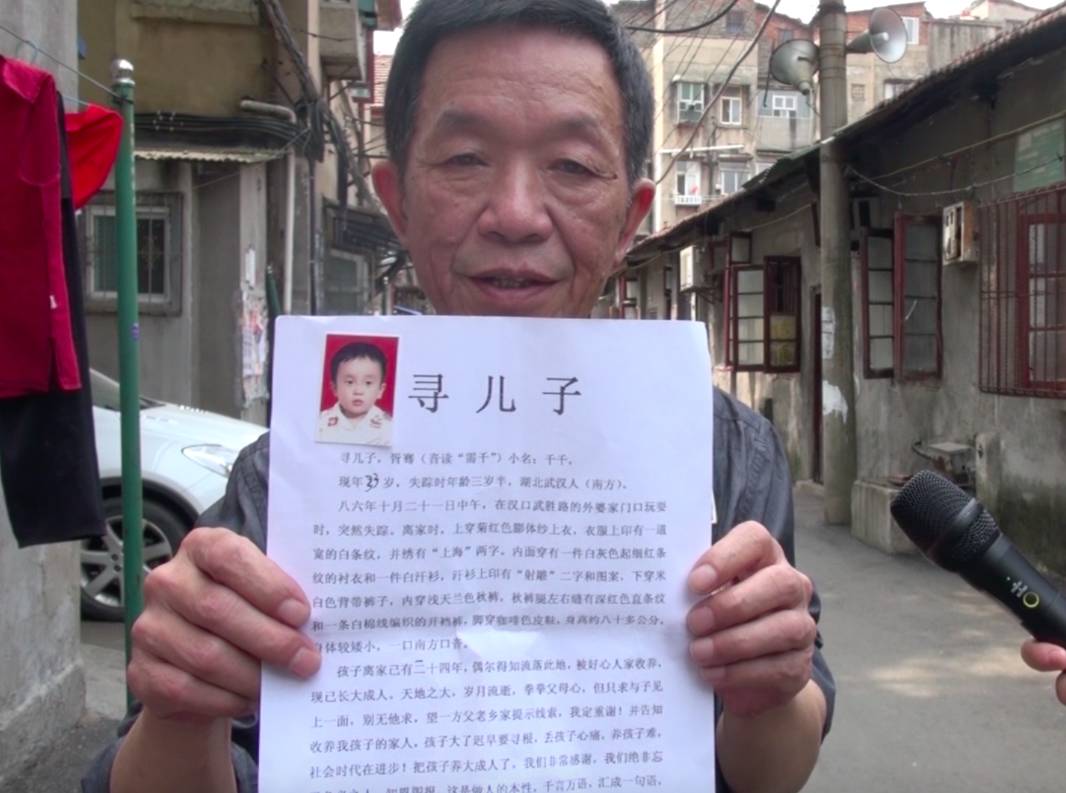 寻儿子
寻儿子，胥骞（音读“需千”）小名：千千。
现年33岁，失踪时年龄三岁半，湖北武汉人（南方）。
八六年十月二十一日中午，在汉口武胜路的外婆家门口玩耍
时，突然失踪。离家时，上穿菊红色膨体纱上衣，衣服上印有一道
宽的白条纹，并绣有“上海”两字，内面穿有一件白灰色起细红条
纹的衬衣和一件白汗衫，汗衫上印有“射雕”二字和图案，下穿米
白色背带裤子，内穿浅天兰色秋裤，秋裤腿左右缝有深红色直条纹
和一条白棉线编织的开裆裤，脚穿咖啡色皮鞋，身高约八十多公分，
身体较矮小，一口南方口音。
孩子离家已有二十四年，偶尔得知流落此地，被好心人家收养，
现已长大成人，天地之大，岁月流逝，拳拳父母心，但只求与子见
上一面，别无他求，望一方父老乡家提示线索，我定重谢！并告知
收养我孩子的家人，孩子大了迟早要寻根，丢孩子心痛，养孩子难，
社会时代在进步！把孩子养大成人了，我们非常感谢，我们绝非忘
这是做人的本性，千言万语，汇成一句话，